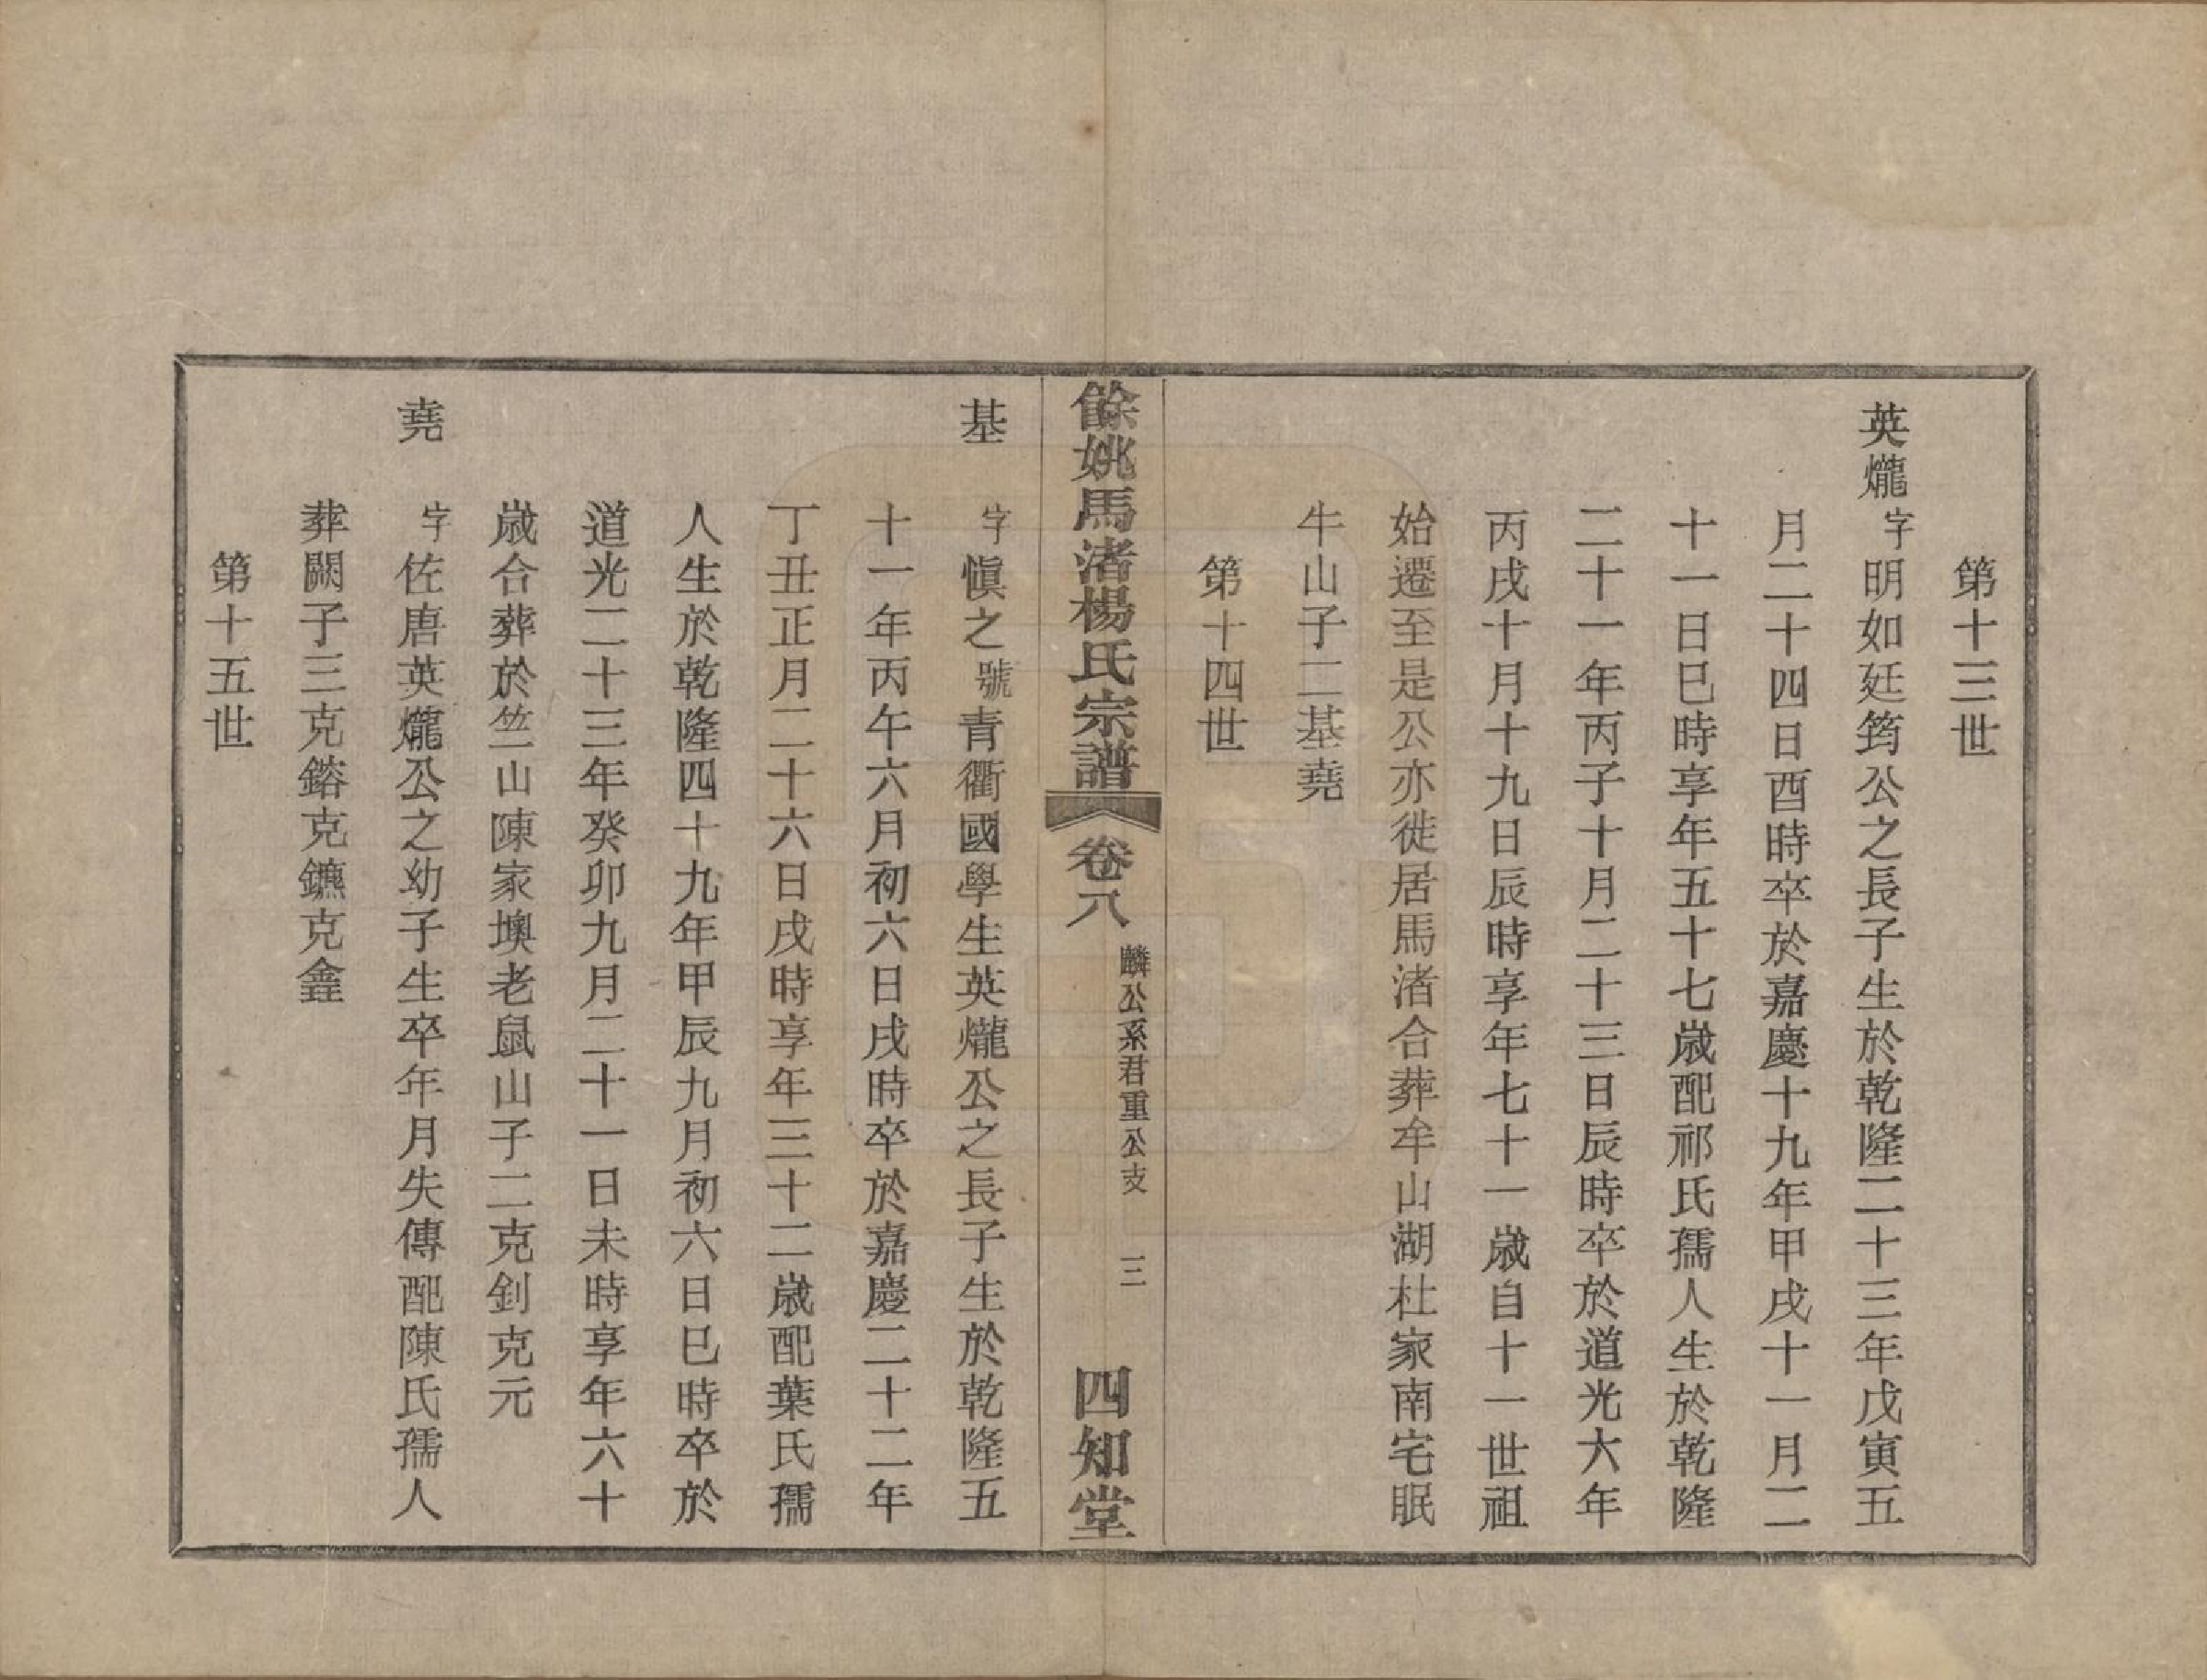 第十三世
英爖字明如廷筠公之長子生於乾隆二十三年戊寅五
月二十四日酉時卒於嘉慶十九年甲戌十一月二
十一日巳時享年五十七歲配祁氏孺人生於乾隆
二十一年丙子十月二十三日辰時卒於道光六年
丙戌十月十九日辰時享年七十一歲自十一世祖
始遷至是公亦徙居馬渚合葬牟山湖杜家南宅眠
牛山子二基堯
第十四世
餘姚馬渚楊氏宗譜 卷八 麟公系君重公支 三 四知堂
基 字愼之號青衢國學生英爖公之長子生於乾隆五
十一年丙午六月初六日戌時卒於嘉慶二十二年
丁丑正月二十六日戌時享年三十二歲配葉氏孺
人生於乾隆四十九年甲辰九月初六日巳時卒於
道光二十三年癸卯九月二十一日未時享年六十
歲合葬於竺山陳家墺老鼠山子二克釗克元
堯 字佐唐英爖公之幼子生卒年月失傳配陳氏孺人
葬闕子三克鎔克鑣克鑫
第十五世